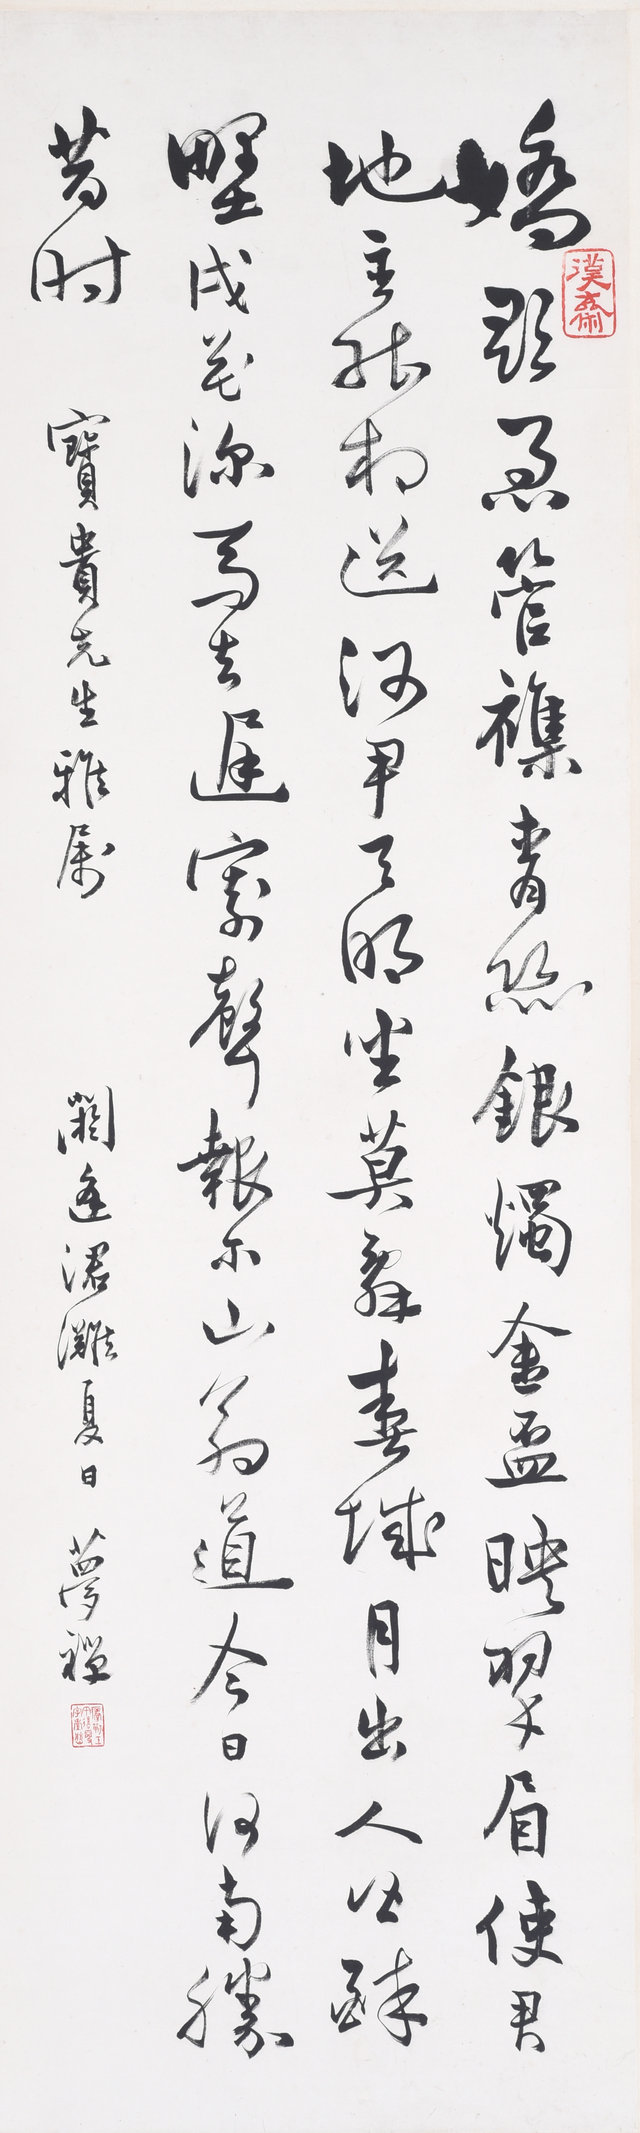 嬌歌急管襍青絲銀燭金盃映翠眉使君
地主能相送河尹天明坐莫辭春城月出人皆醉
野戍花深馬去遲寄聲報尔山翁道今日河南勝
昔时
寶貴先生雅属
閼逢涒灘夏日 夢禪